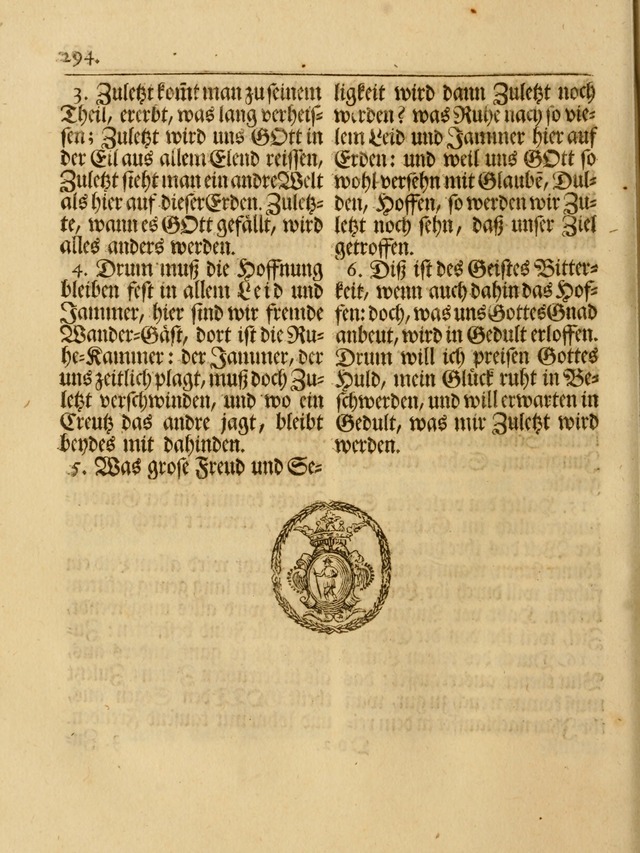 294.
3. Zuletzt kom̃t man zu seinem
Theil, ererbt, was lang verheis-
sen; Zuletzt wird uns GOtt in
der Eil aus allem Elend reissen,
Zuletzt sieht man ein andre Welt
als hier auf dieser Erden. Zuletz-
te, wann es GOtt gefällt, wird
alles anders werden.
4. Drum muß die Hoffnung
bleiben fest in allem Leid und
Jammer, hier sind wir fremde
Wander-Gäst, dort ist die Ru-
he-Kammer: der Jammer, der
uns zeitlich plagt, muß doch Zu-
letzt verschwinden, und wo ein
Creutz das andre jagt, bleibt
beydes mit dahinden.
5. Was grose Freud und Se-
ligkeit wird dann Zuletzt noch
werden? was Ruhe nach so vie-
lem Leid und Jammer hier auf
Erden: und weil uns GOtt so
wohl versehn mit Glaubē, Dul-
den, Hoffen, so werden wir Zu-
letzt noch sehn, daß unser Ziel
getroffen.
6. Diß ist des Geistes Bitter-
keit, wenn auch dahin das Hof-
fen: doch, was uns Gottes Gnad
anbeut, wird in Gedult erloffen.
Drum will ich preisen Gottes
Huld, mein Glück ruht in Be-
schwerden, und will erwarten in
Gedult, was mir Zuletzt wird
werden.